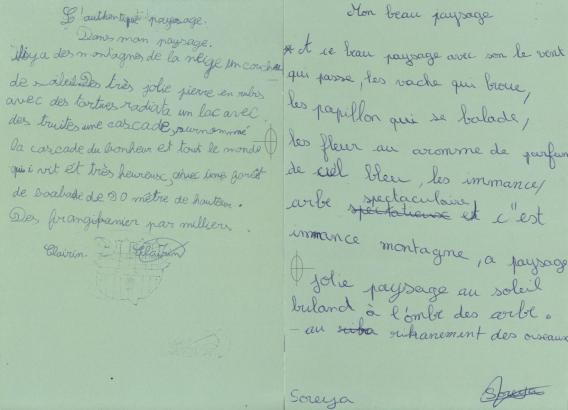 L'authentique paysage.
Dans mon paysage.
Il y a des montagnes de la neige un couche
de soleil Des très jolie pierre en rubis
avec des tortues radiata un lac avec
des truites une cascade, surnommé
la cascade du bonheur et tout le monde
qui i vit et très heureux, avec une forêt
de baobabe de 90 mètre de hauteur.
Des frangipanier par milliers
Clairin Clairin
Mon beau paysage
* A ce beau paysage avec son le vent
qui passe, les vache qui broue,
les papillon qui se balade,
les fleur au aromme de parfum
de ciel bleu, les immance,
arbe spectaculaire et c"est
immance montagne, a paysage
jolie paysage au soleil
buland à l'ombe des arbe.
- au rikanement des oiseaux
Soreya Soreya